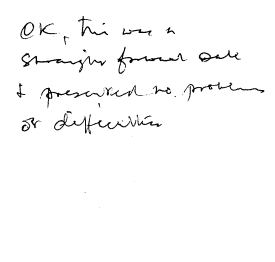 OK, this was a
straight forward sale
& presented no problems
or difficulties